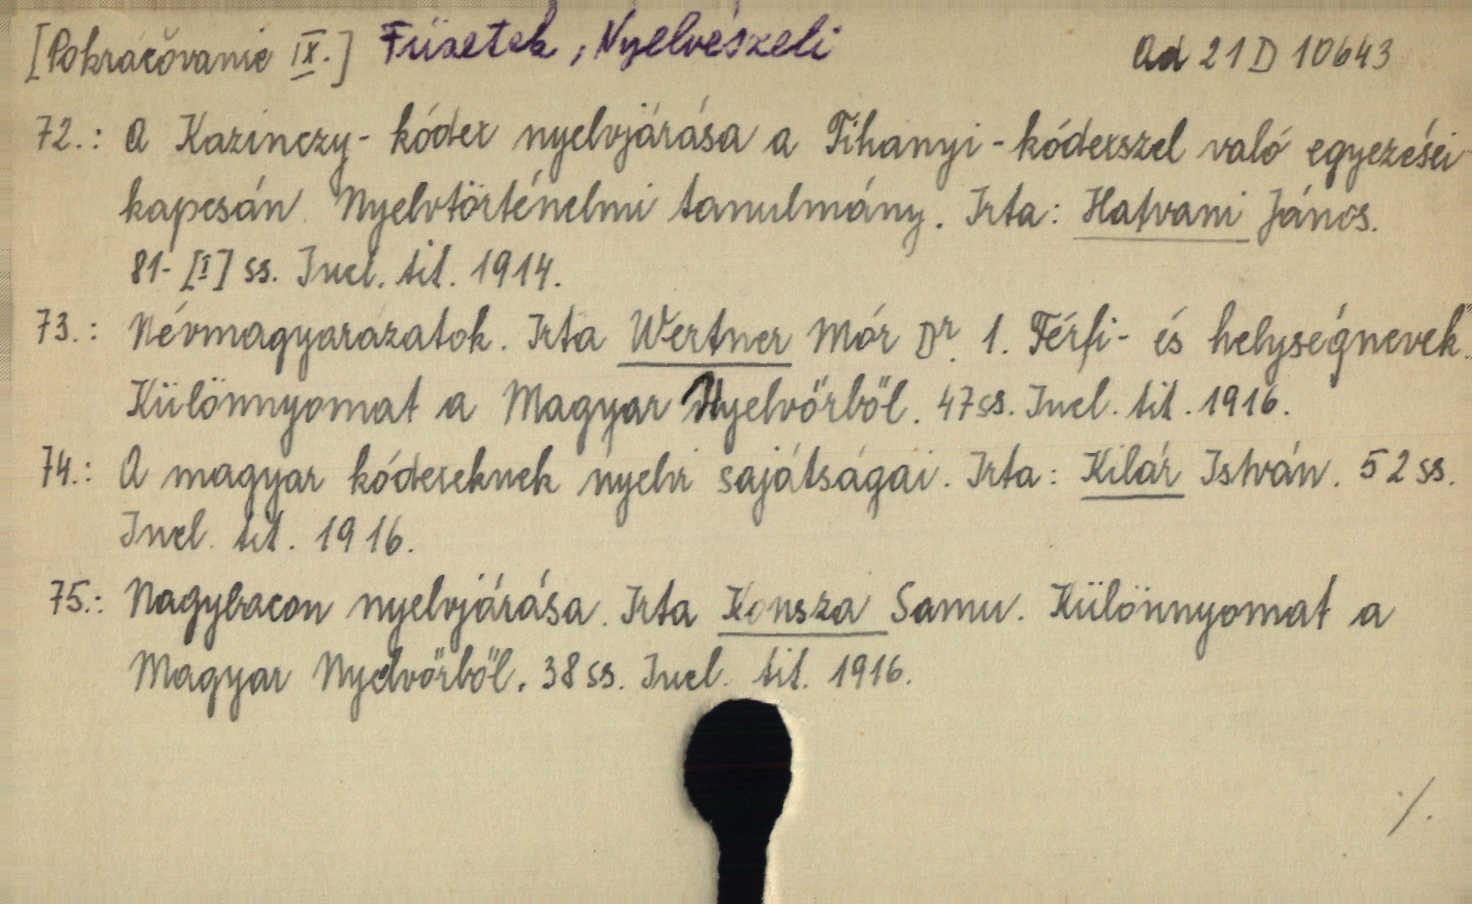 [Pokračovanie IX.] Füzetek, Nyelvészeti Ad 21 D 10643
72.: A Kazinczy-kódex nyelvjárása a Tihanyi-kódexszel való egyezései
kapcsán Nyelvtörténelmi tanulmány. Irta: Hatvani János.
81-[I] ss. Incl. tit. 1914.
73.: Névmagyarázatok. Irta Wertner Mór Dr. 1. Férfi- és helységnevek.
Különnyomat a Magyar Nyelvőrből. 47 ss. Incl. tit. 1916.
74.: A magyar kódexeknek nyelvi sajátságai. Irta: Kilár István. 52 ss.
Incl. tit. 1916.
75.: Nagybacon nyelvjárása. Irta Konsza Samu. Különnyomat a
Magyar Nyelvőrből. 38 ss. Incl. tit. 1916.
./.